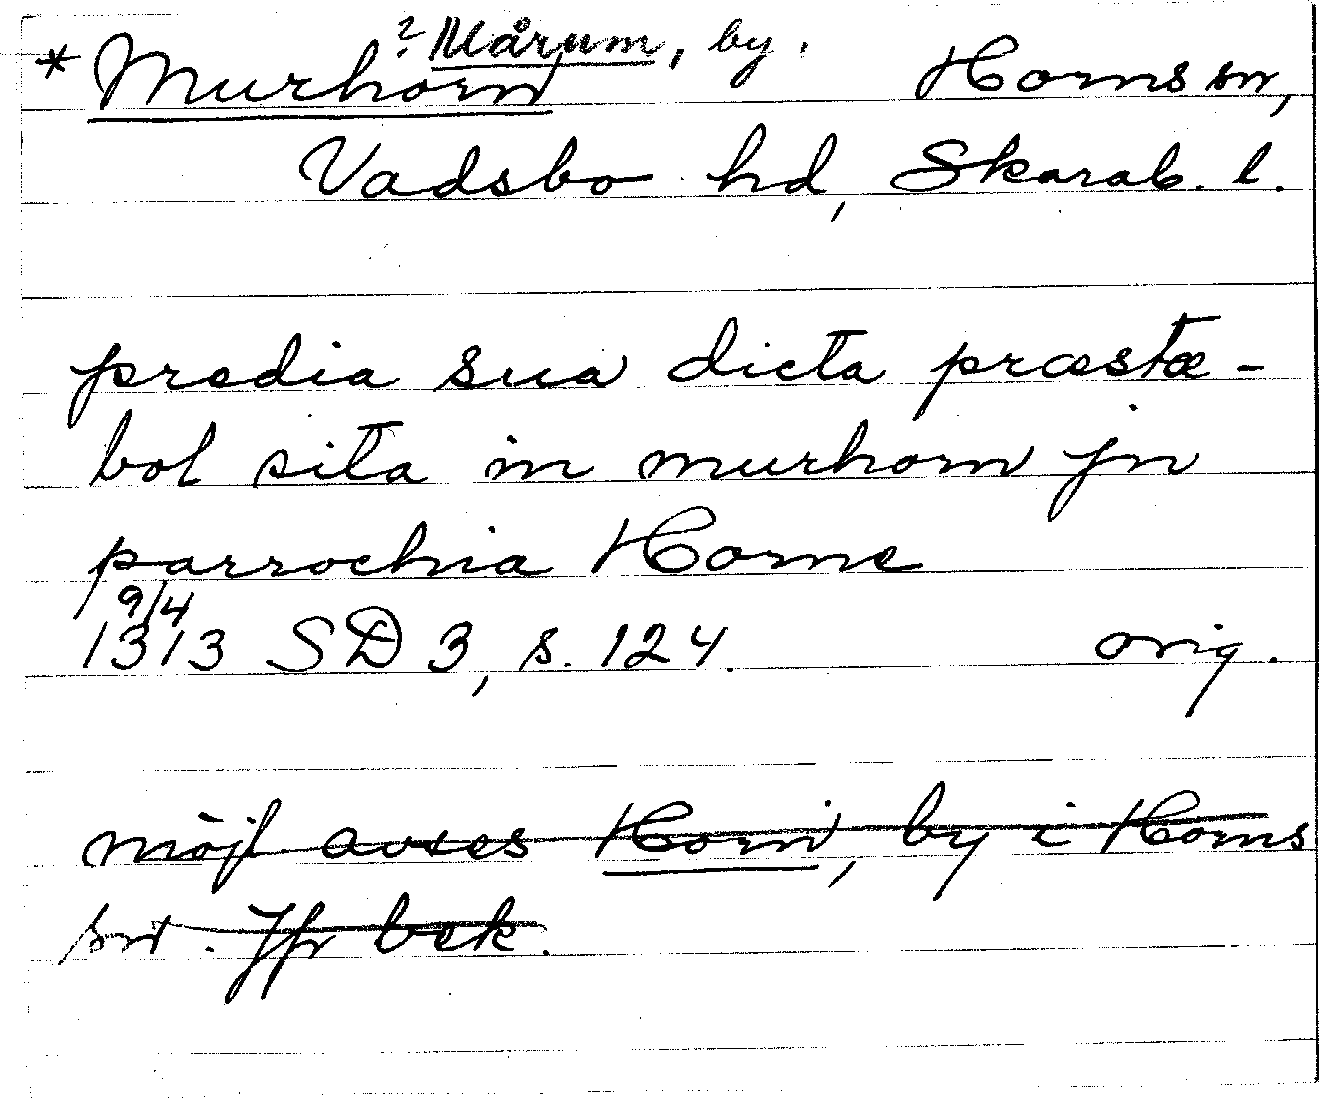 ? Mårum, by.
* Murhorn Horns sn,
Vadsbo hd, Skarab. l.
predia sua dicta præstæ-
bol sita in murhorn jn
parrochia Horne
9/4
1313 SD 3, s. 124. orig.
möjl avses Horn, by i Horns
sn. Jfr bek.